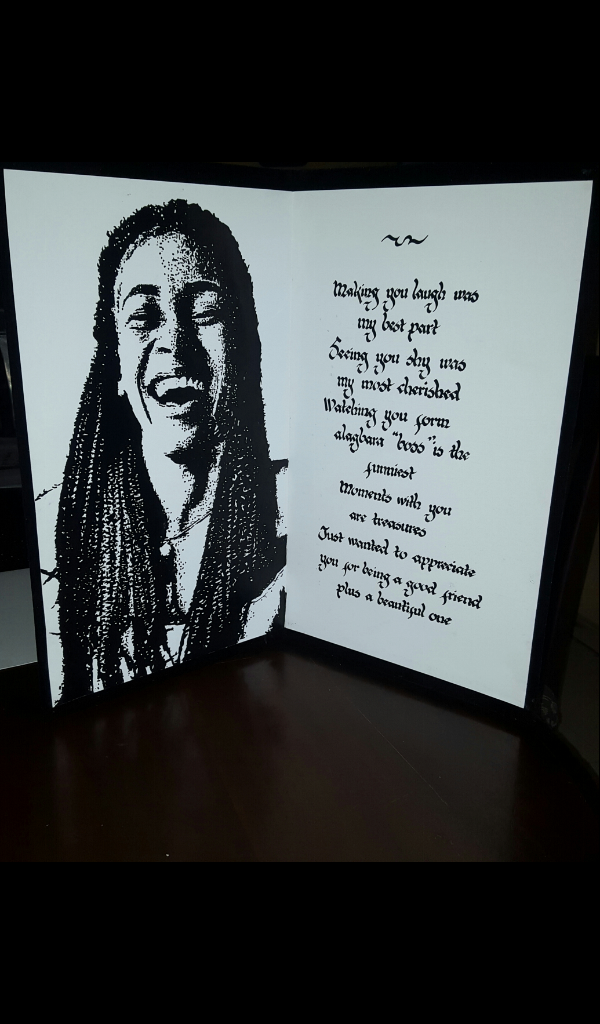 Making you laugh was
my best part
Seeing you shy was
my most cherished
Watching you form
alagbara "boss" is the
funniest
Moments with you
are treasures
Just wanted to appreciate
you for being a good friend
plus a beautiful one